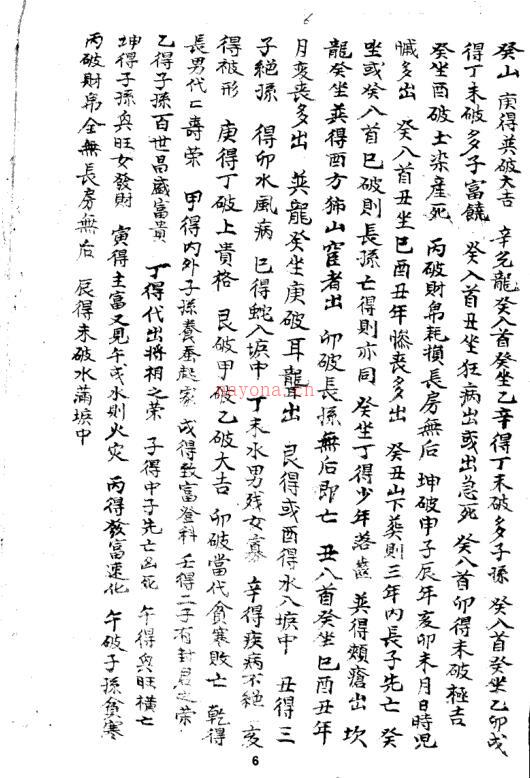 癸山 庚得巽破大吉 辛兌龍癸入首癸坐乙辛得丁未破多子孫 癸入首癸坐乙卯戌
得丁未破多子富饒 癸入首丑坐狂病出或出急死 癸入首卯得未破極吉
癸坐酉破土染産死 丙破財帛耗損長房無后 坤破申子辰年亥卯未月日時児
賊多出 癸入首丑坐巳酉丑年慘喪多出 癸丑山下葬則三年内長子先亡 癸
坐或癸入首巳破則長孫亡得則亦同 癸坐丁得少年落齒 巽得頰瘡出 坎
龍癸坐巽得西方山窺者出 卯破長孫無后即亡 丑入首癸坐巳酉丑年
月変喪多出 巽龍癸坐庚破耳聾出 艮得或酉得水入塚中 丑得三
子絶孫 得卯水風病 巳得蛇入塚中 丁未水男残女寡 辛得疾病不絶 亥
得被形 庚得丁破上貴格 艮破甲破乙破大吉 卯破當代貧寒敗亡 乾得
長男代二壽荣 甲得内外子孫養蚕起家 戌得致富登科 壬得二子有封君之荣
乙得子孫百世昌盛富貴 丁得代出將相之荣 子得中子先亡凶死 午得與旺横亡
坤得子孫與旺女發財 寅得主富又見午戌水則火灾 丙得發富速化 午破子孫貧寒
丙破財帛全無長房無后 辰得未破水滿塚中
6
nayona.cn